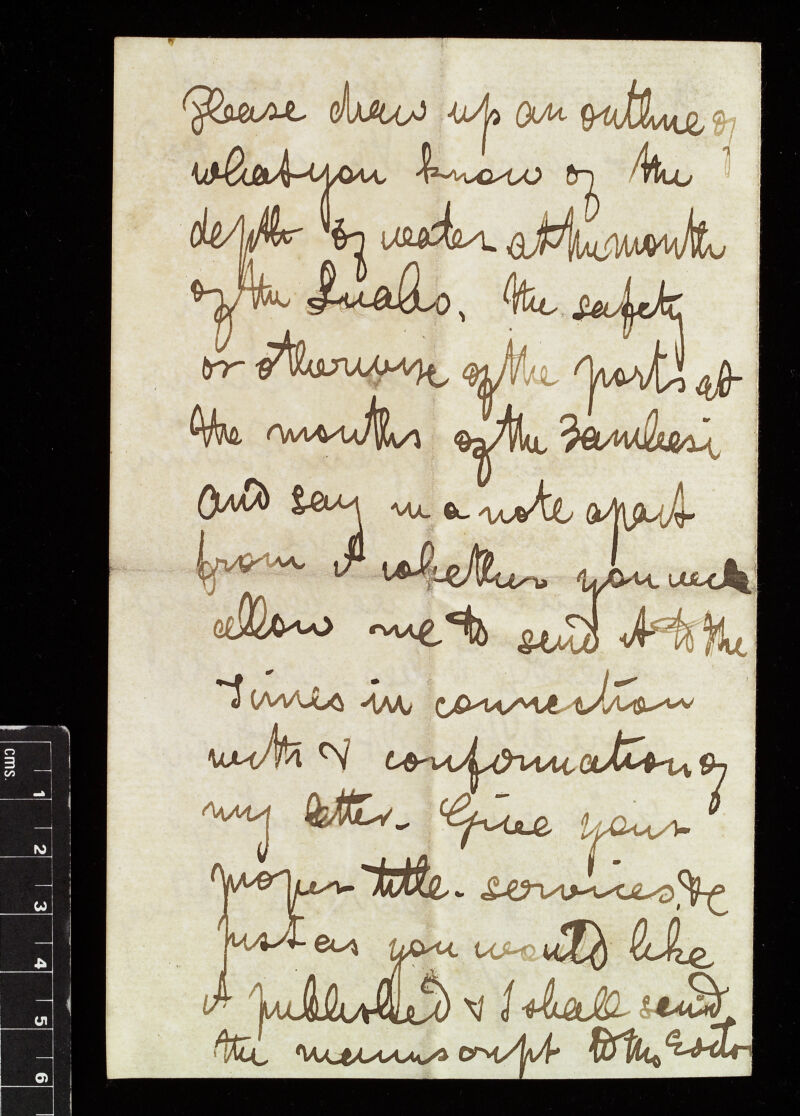 Please draw up an outline of
what you know of the
depth of water at the mouth
of the Luabo, the safety
or otherwise of the ports at
the mouths of the Zambesi
and say in a note apart
from it whether you will
allow me to send it to the
Times in connection
with & conformation of
my letter - Give your
proper title - services, &c
just as you would like
it published & I shall send
the manuscript to the Editor
cms.
1
2
3
4
5
6